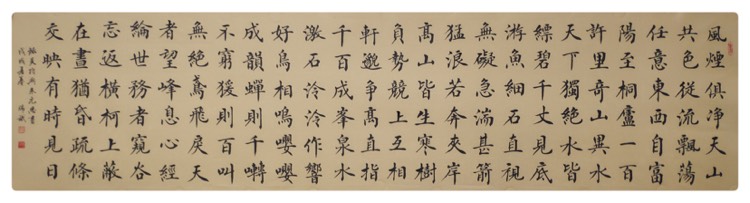 風煙俱净天山
共色從流飄蕩
任意東西自富
陽至桐廬一百
許里奇山異水
天下獨絕水皆
縹碧千丈見底
游魚細石直視
無礙急湍甚箭
猛浪若奔夾岸
髙山皆生寒樹
負勢競上互相
軒邈爭髙直指
千百成峯泉水
激石泠泠作響
好鳥相鳴嚶嚶
成韻蟬則千囀
不窮猨則百叫
無絕鳶飛戾天
者望峰息心經
綸世務者窺谷
忘返橫柯上蔽
在晝猶昏疏條
交映有時見日
朱元思書
戊戌